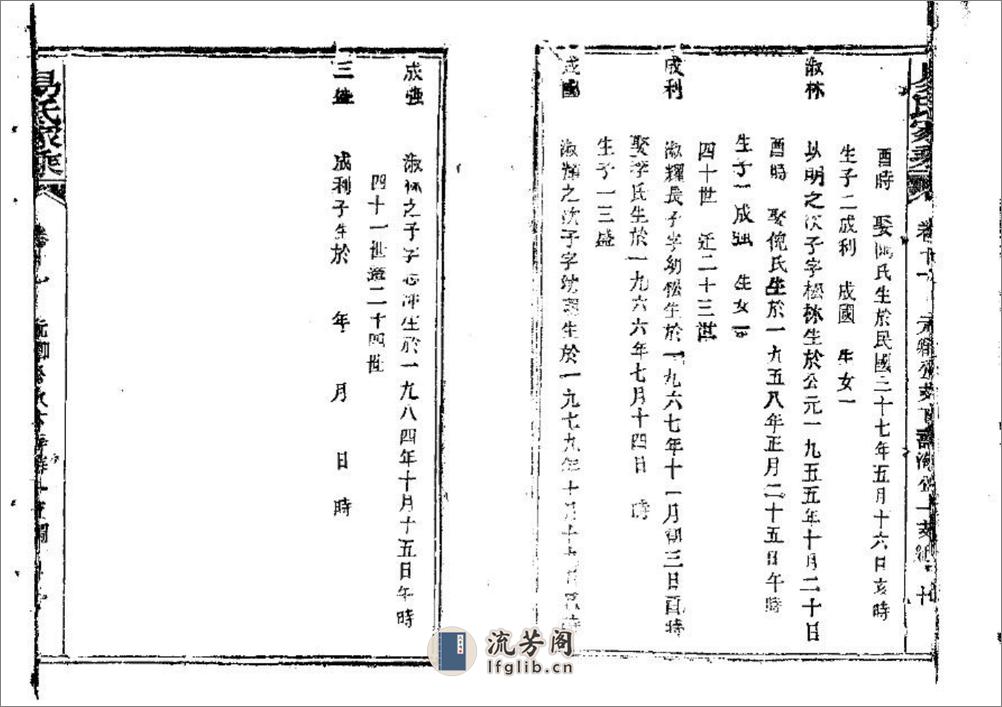 易氏家乘
酉時　娶 氏生於民國三十七年五月十六日亥時
生子二成利　成國　生女一
淑林　以明之次子字松林生於公元一九五五年十月二十日
酉時　娶倪氏生於一九五八年正月二十五日午時
生子一成强　生女一
四十世　迁二十三世
成利　淑耀長子字幼松生於一九六七年十一月初三日酉時
娶李氏生於一九六六年七月十四日　時
生子一三盛
成國　淑耀之次子字幼 生於一九七九年十月十 日 時
成强　淑林之子字志 生於一九八四年十月十五日午時
四十一世遷二十四世
三盛　成利子生於　年　月　日　時
易氏家乘
流芳阁
lfglib.cn